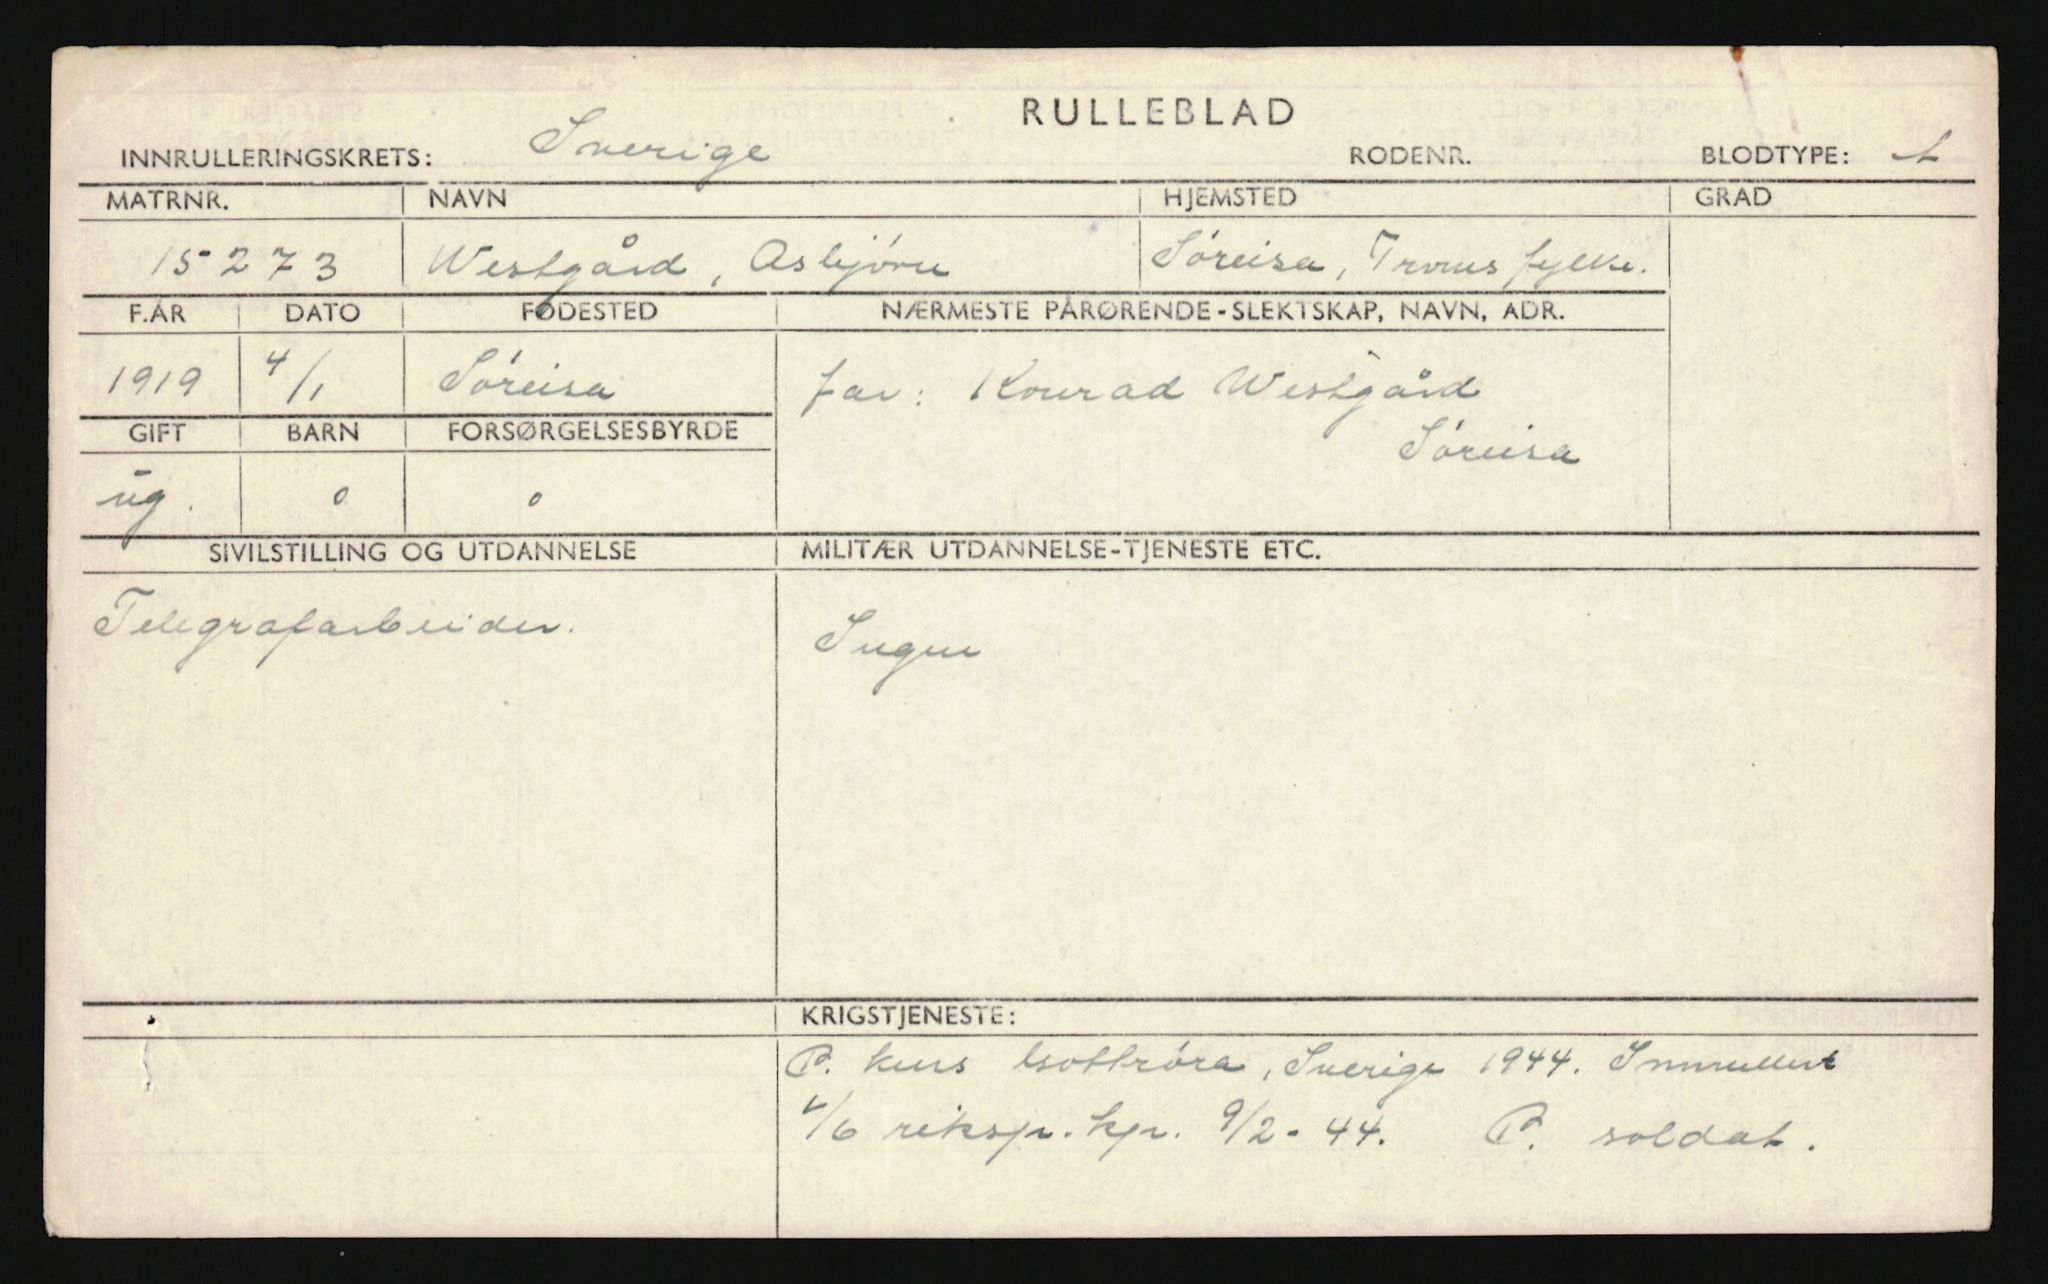 RULLEBLAD
INNRULLERINGSKRETS: Sverige RODENR. BLODTYPE: A
MATRNR. NAVN HJEMSTED GRAD
15273 Westgård, Asbjørn Sørreisa, Troms fylke.
F.ÅR DATO FØDESTED NÆRMESTE PÅRØRENDE-SLEKTSKAP, NAVN, ADR.
1919 4/1 Sørreisa far: Konrad Westgård
Sørreisa
GIFT BARN FORSØRGELSESBYRDE
ug. 0 0
SIVILSTILLING OG UTDANNELSE MILITÆR UTDANNELSE-TJENESTE ETC.
Telegrafarbeider. Ingen
KRIGSTJENESTE:
P. kurs Sverige 1944. Innrullert
riksp. kp. 9/2-44. P. soldat.